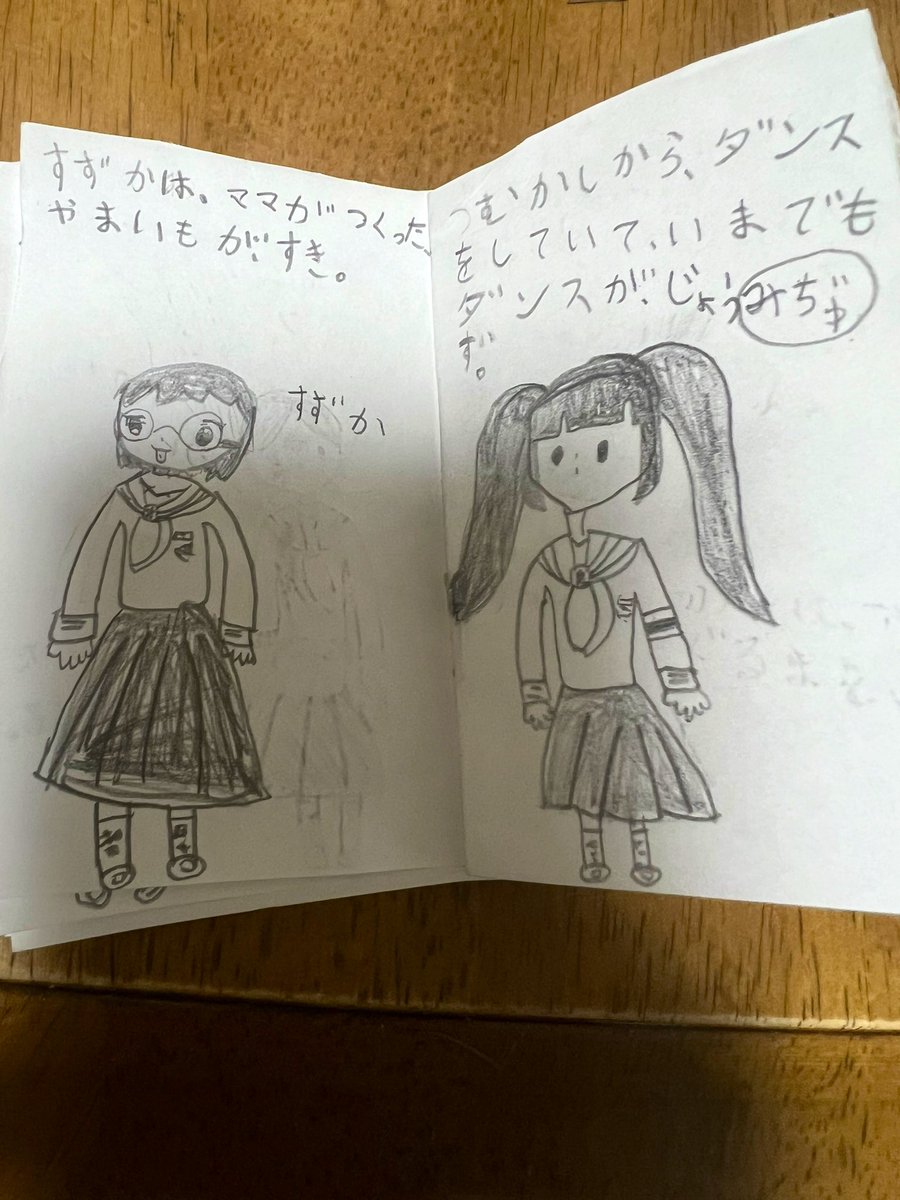 すずかは。ママがつくった、
やまいもがすき。
すずか
つむかしから、ダンス
をしていて、いまでも
ダンスが、じょう
ず。
みぢゅ